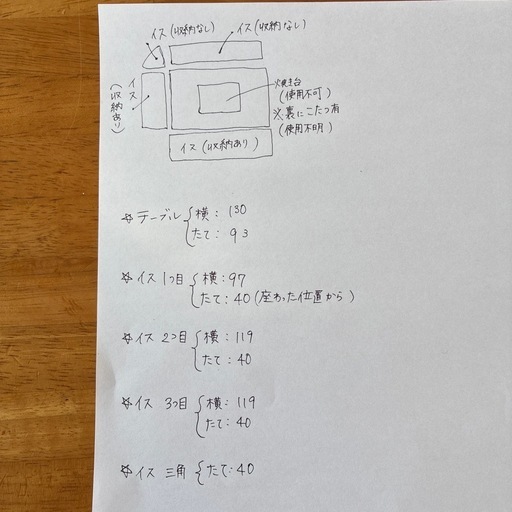 イス(収納なし)
イス(収納なし)
イス
(収納あり)
焼き台
(使用不可)
※裏にこたつ有
(使用不明)
イス(収納あり)
☆テーブル 横: 130
たて: 93
☆イス 1つ目 横: 97
たて: 40(座わった位置から)
☆イス 2つ目 横: 119
たて: 40
☆イス 3つ目 横: 119
たて: 40
☆イス 三角 たて: 40